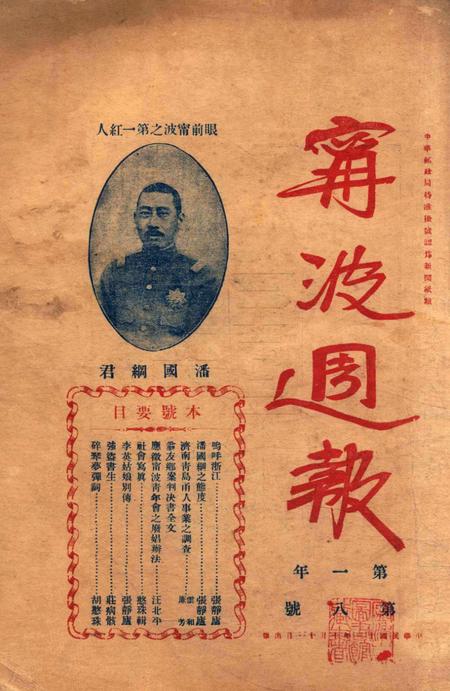 中華郵政局特准掛號認爲新聞紙類
甯波週報
第一年
第八號
眼前甯波之第一紅人
潘國綱君
本號要目
嗚呼浙江………張靜廬
潘國綱之態度………張靜廬
濟南靑島甬人事業之調查………雲和 蓮芳
翁友鄉案判決書全文
應徵甯波靑年會之廢娼辦法………汪北平
社會寫眞………憨珠輯
李英姑娘別傳………張靜廬
強盜書生………莊病骸
碎琴夢彈詞………胡憨珠